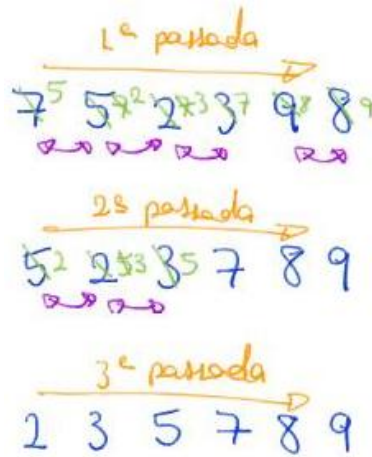 1ª passada
7 5 5 7 2 2 7 3 3 7 9 9 8 8 9
2ª passada
5 2 2 5 3 3 5 7 8 9
3ª passada
2 3 5 7 8 9